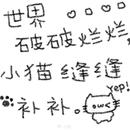 世界
破破烂烂,
小猫缝缝
补补。
yep!